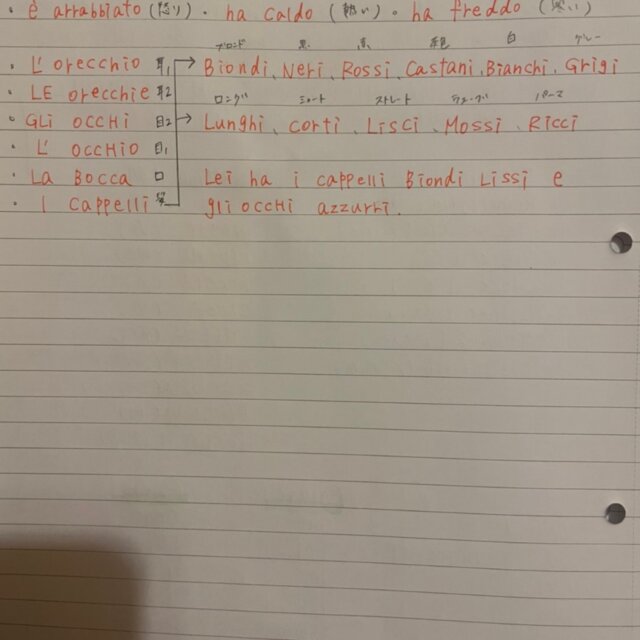 ・è arrabbiato (怒り)・ha caldo (熱い)。ha freddo (寒い)
ブロンド 黒 赤 茶色 白 グレー
・L'orecchio 耳1 → Biondi、Neri、Rossi、Castani、Bianchi、Grigi
・LE orecchie 耳2
ロング ショート ストレート パーマ
・GLi occHi 目2 → Lunghi、corti、Lisci、Mossi、Ricci
・L'occHio 目1
・La Bocca 口 Lei ha i cappelli Biondi Lissi e
・I cappelli 髪 gli occHi azzurri.